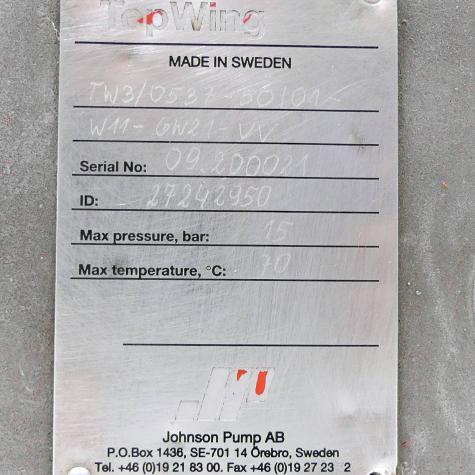 TopWing
MADE IN SWEDEN
TW3/0537-50/01-
W11-GW21-VV
Serial No: 09.200021
ID: 27242950
Max pressure, bar: 15
Max temperature, °C: 70
JP
Johnson Pump AB
P.O.Box 1436, SE-701 14 Örebro, Sweden
Tel. +46 (0)19 21 83 00. Fax +46 (0)19 27 23